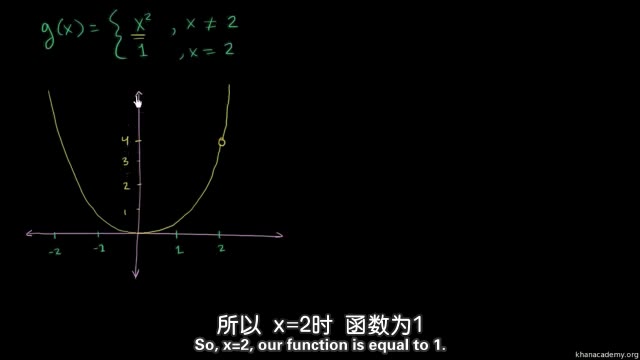 g(x) = { x² , x ≠ 2
1 , x = 2
4
3
2
1
-2 -1 1 2
所以 x=2时 函数为1
So, x=2, our function is equal to 1.
khanacademy.org